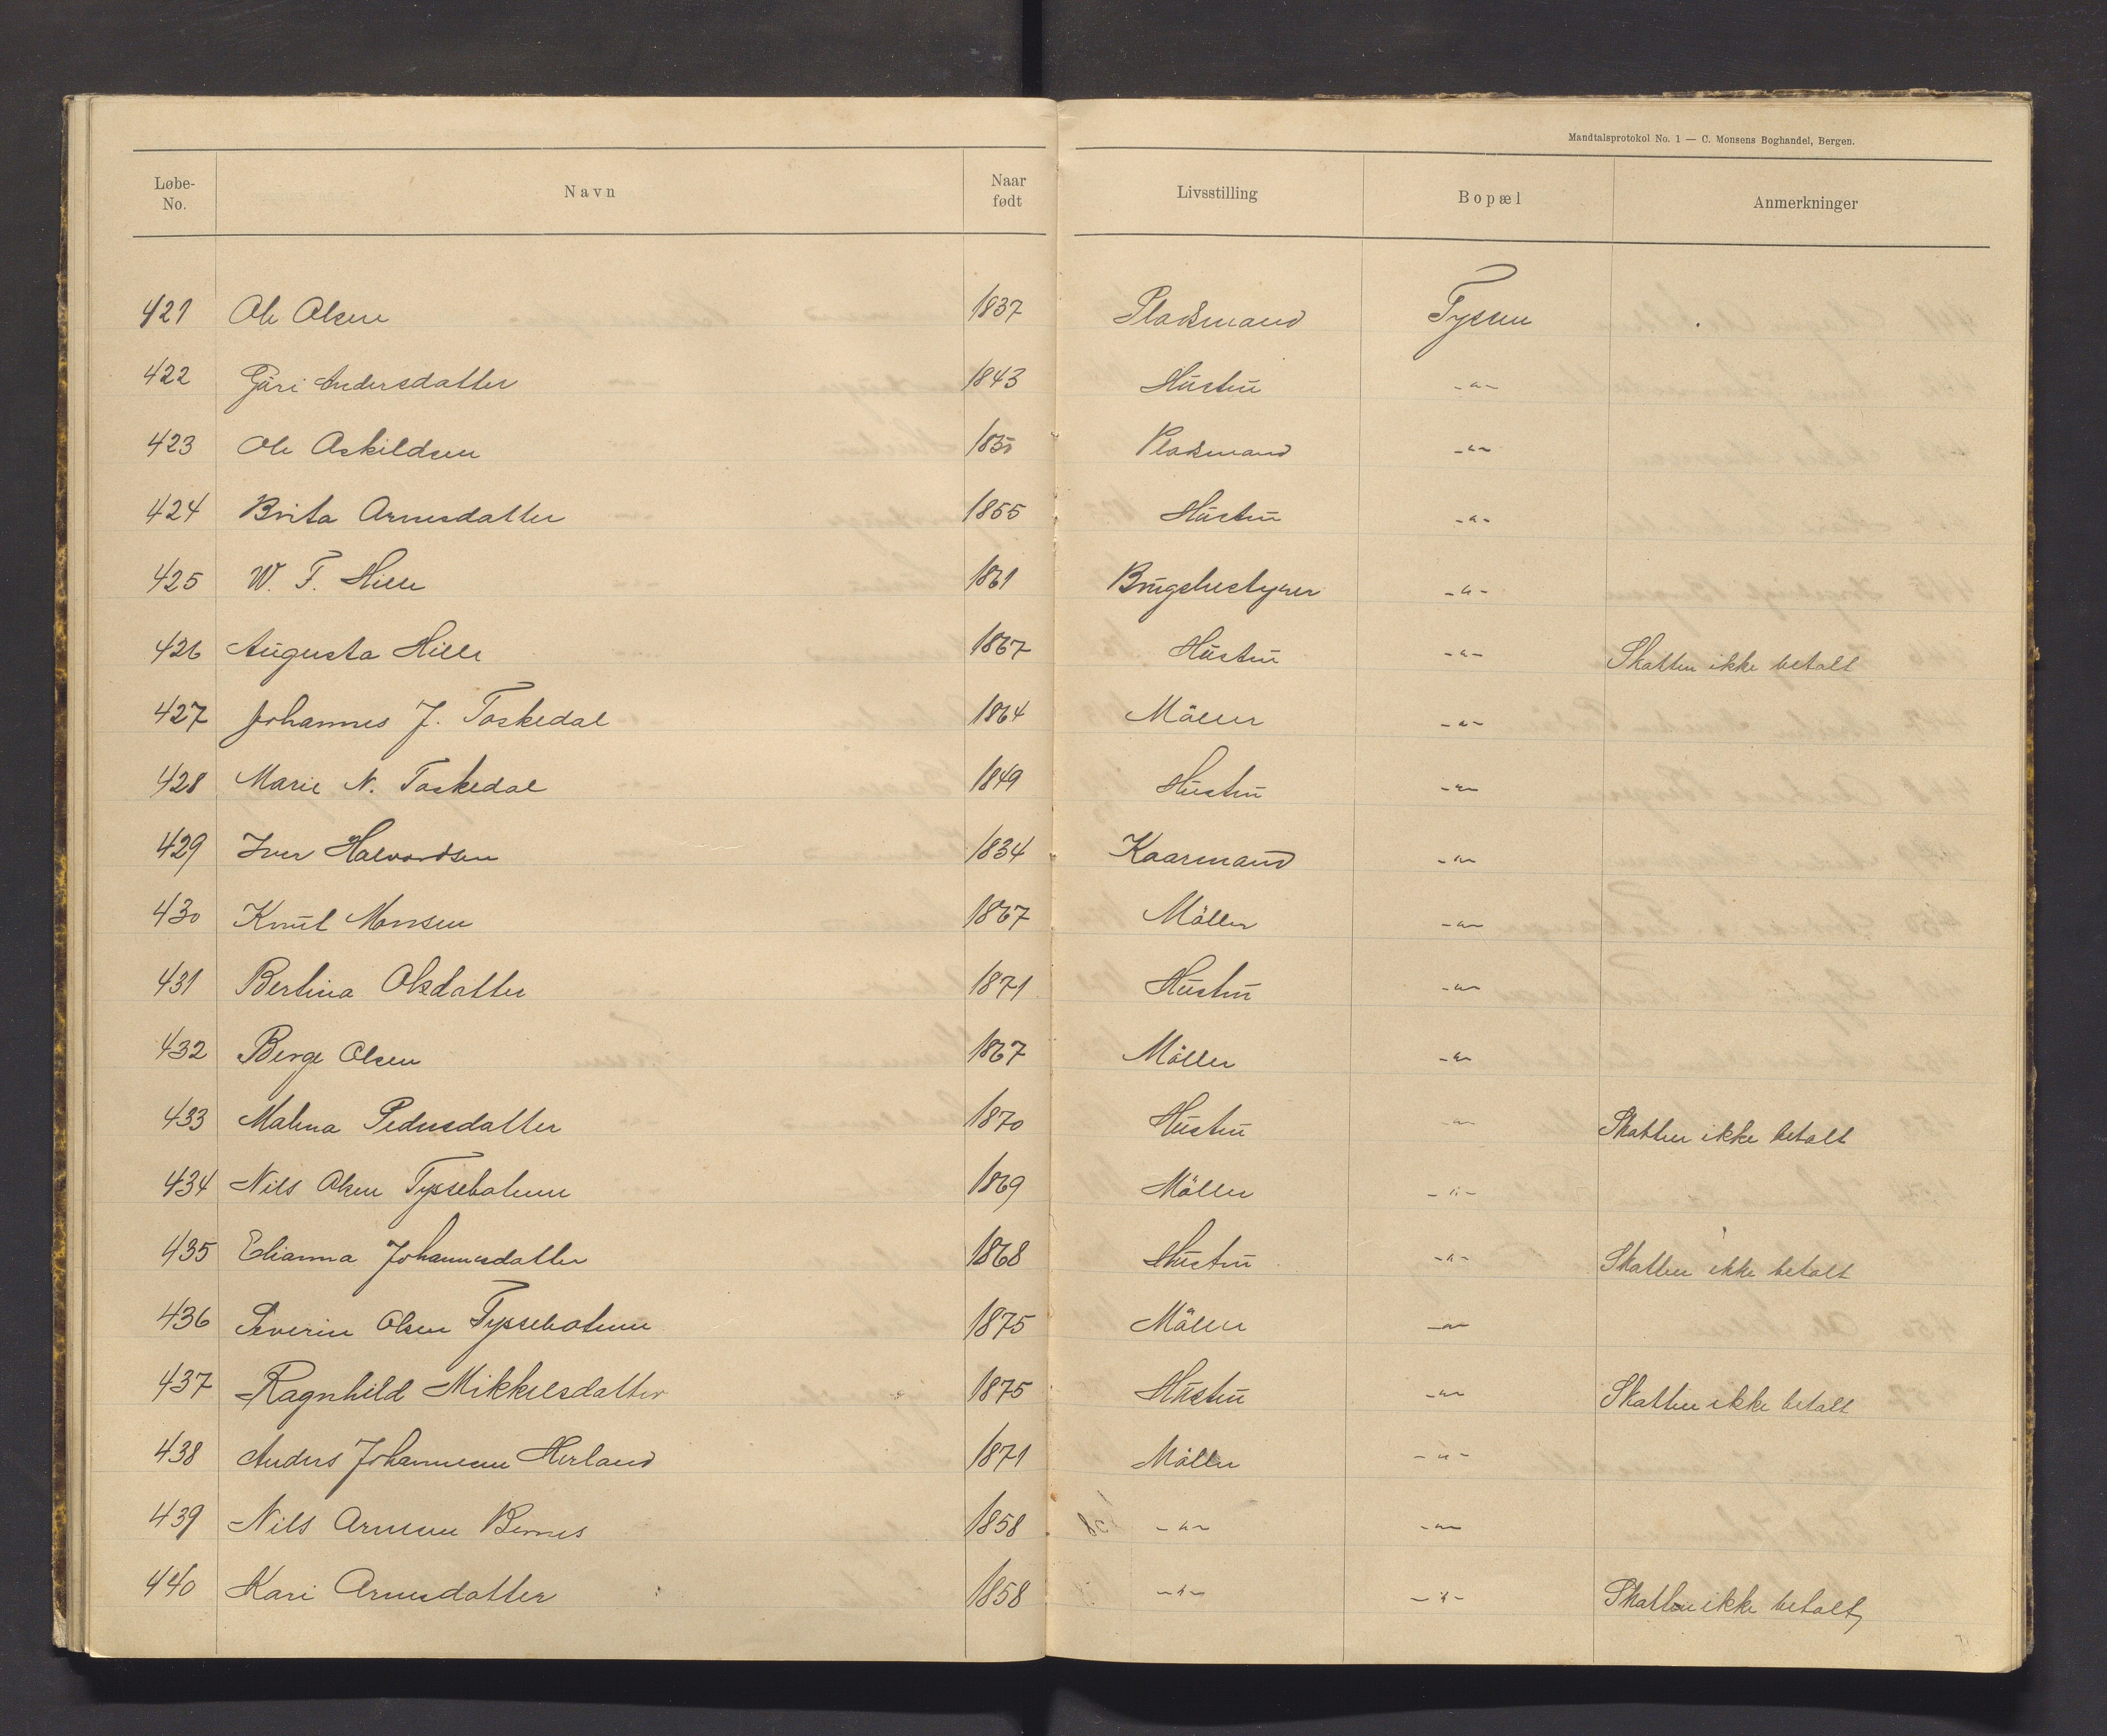 Mandtalsprotokol No. 1 — C. Monsens Boghandel, Bergen.
Løbe-No. Navn Naar født Livsstilling Bopæl Anmerkninger
421 Ole Olsen 1837 Pladsmand Tyssen
422 Guri Andersdatter 1843 Hustru -"-
423 Ole Askildsen 1835 Pladsmand -"-
424 Brita Arnesdatter 1855 Hustru -"-
425 W. F. Hille 1861 Brugsbestyrer -"-
426 Augusta Hille 1867 Hustru -"- Skatten ikke betalt
427 Johannes J. Toskedal 1864 Möller -"-
428 Marie N. Toskedal 1849 Hustru -"-
429 Iver Halvordsen 1834 Kaarmand -"-
430 Knut Monsen 1867 Möller -"-
431 Bertina Olsdatter 1871 Hustru -"-
432 Berge Olsen 1867 Möller -"-
433 Malena Pedersdatter 1870 Hustru -"- Skatten ikke betalt
434 Nils Olsen Tyssebotnen 1869 Möller -"-
435 Elianna Johannesdatter 1868 Hustru -"- Skatten ikke betalt
436 Severin Olsen Tyssebotnen 1875 Möller -"-
437 Ragnhild Mikkelsdatter 1875 Hustru -"- Skatten ikke betalt
438 Anders Johannesen Herland 1871 Möller -"-
439 Nils Arnesen Bernes 1858 -"- -"-
440 Kari Arnesdatter 1858 -"- -"- Skatten ikke betalt,